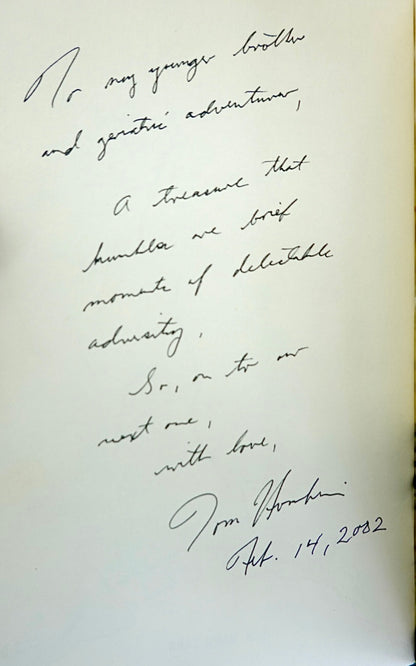 To my younger brother
and geriatric adventurer,
A treasure that
humbles are brief
moments of delectable
adversity.
So, on to our
next one,
with love,
Tom
Feb. 14, 2002